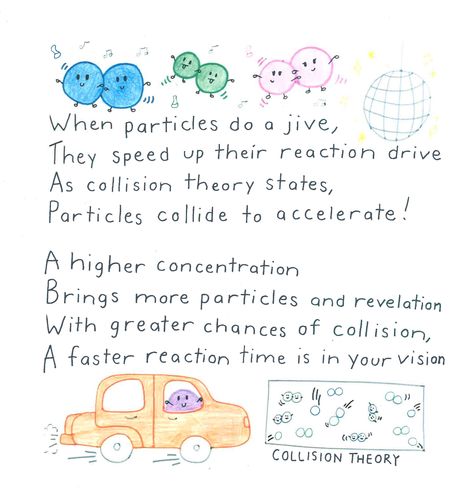 When particles do a jive,
They speed up their reaction drive
As collision theory states,
Particles collide to accelerate!
A higher concentration
Brings more particles and revelation
With greater chances of collision,
A faster reaction time is in your vision
COLLISION THEORY